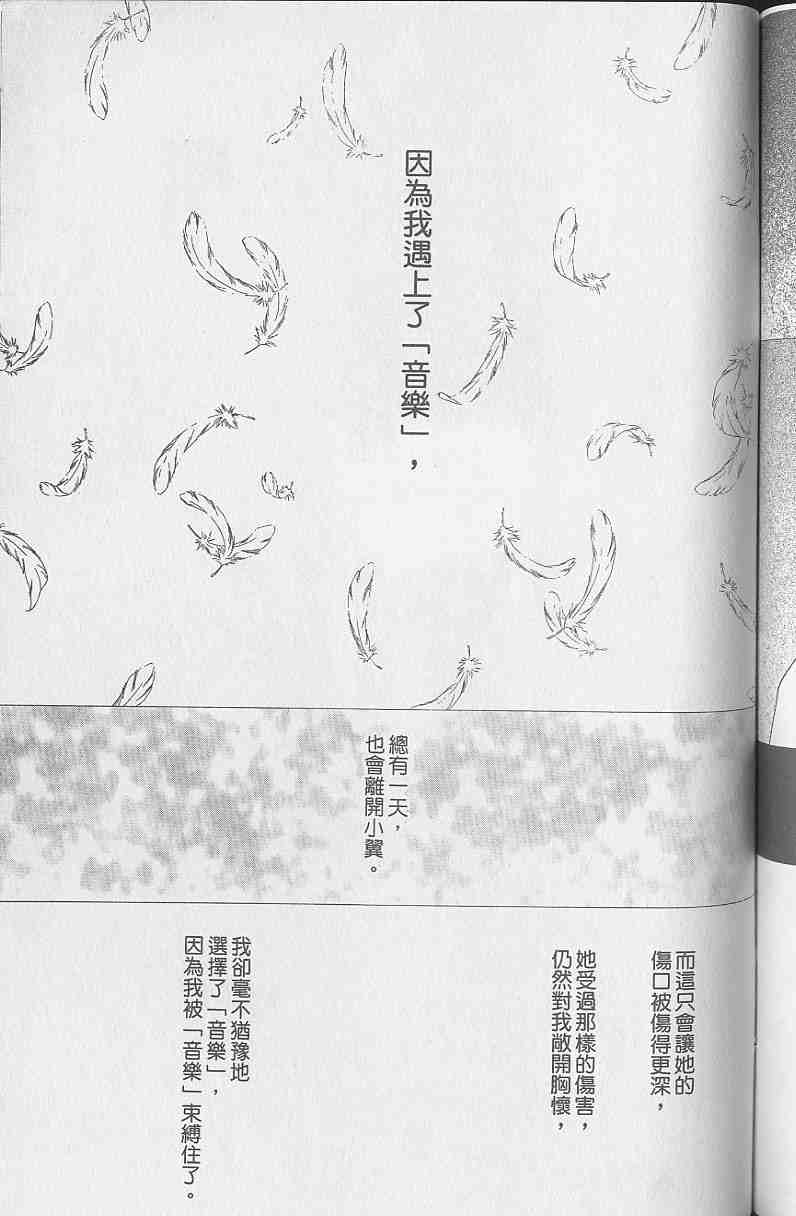 因為我遇上了「音樂」，
總有一天，
也會離開小翼。
而這只會讓她的
傷口被傷得更深，
她受過那樣的傷害，
仍然對我敞開胸懷，
我卻毫不猶豫地
選擇了「音樂」，
因為我被「音樂」束縛住了。